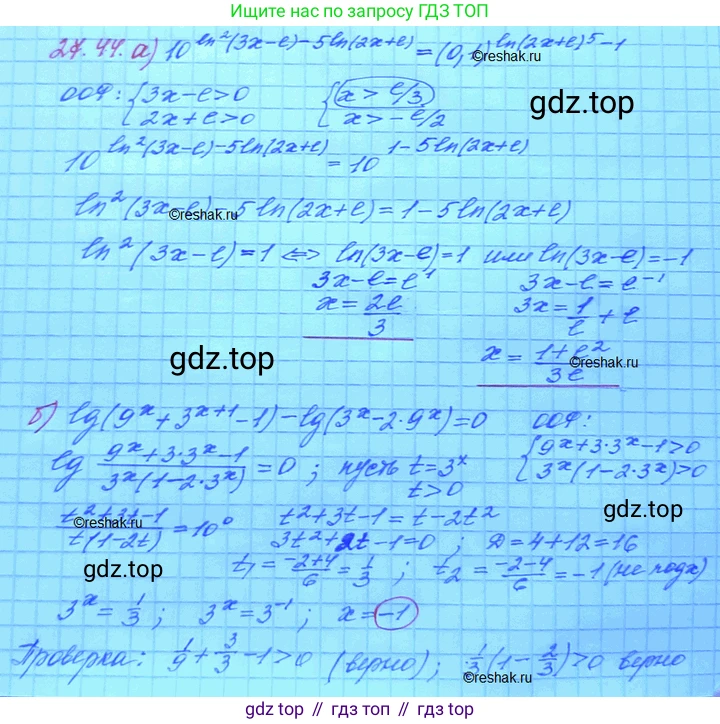 Ищите нас по запросу ГДЗ ТОП
27.44. а) 10^{ln²(3x-e)-5ln(2x+e)} = (0,1)^{ln(2x+e)^5-1}
©reshak.ru
ООФ: {3x-e>0 {x> e/3
{2x+e>0 {x>-e/2
gdz.top
10^{ln²(3x-e)-5ln(2x+e)} = 10^{1-5ln(2x+e)}
ln²(3x-e)-5ln(2x+e)=1-5ln(2x+e)
©reshak.ru
ln²(3x-e)=1 ⇔ ln(3x-e)=1 или ln(3x-e)=-1
3x-e=e¹ 3x-e=e⁻¹
x=2e/3 3x=1/e+e
gdz.top
x=(1+e²)/3e
©reshak.ru
б) lg(9^x+3^{x+1}-1)-lg(3^x-2·9^x)=0 ООФ:
lg (9^x+3·3^x-1)/(3^x(1-2·3^x)) =0 ; пусть t=3^x {9^x+3·3^x-1>0
t>0 {3^x(1-2·3^x)>0
(t²+3t-1)/(t(1-2t)) =10⁰ t²+3t-1=t-2t²
©reshak.ru
gdz.top
3t²+2t-1=0 ; Д=4+12=16
gdz.top
t₁=(-2+4)/6=1/3 ; t₂=(-2-4)/6=-1 (не подх)
3^x=1/3 ; 3^x=3⁻¹ ; x=-1
Проверка: 1/9+3/3-1>0 (верно); 1/3(1-2/3)>0 верно
©reshak.ru
gdz.top // гдз топ // gdz.top